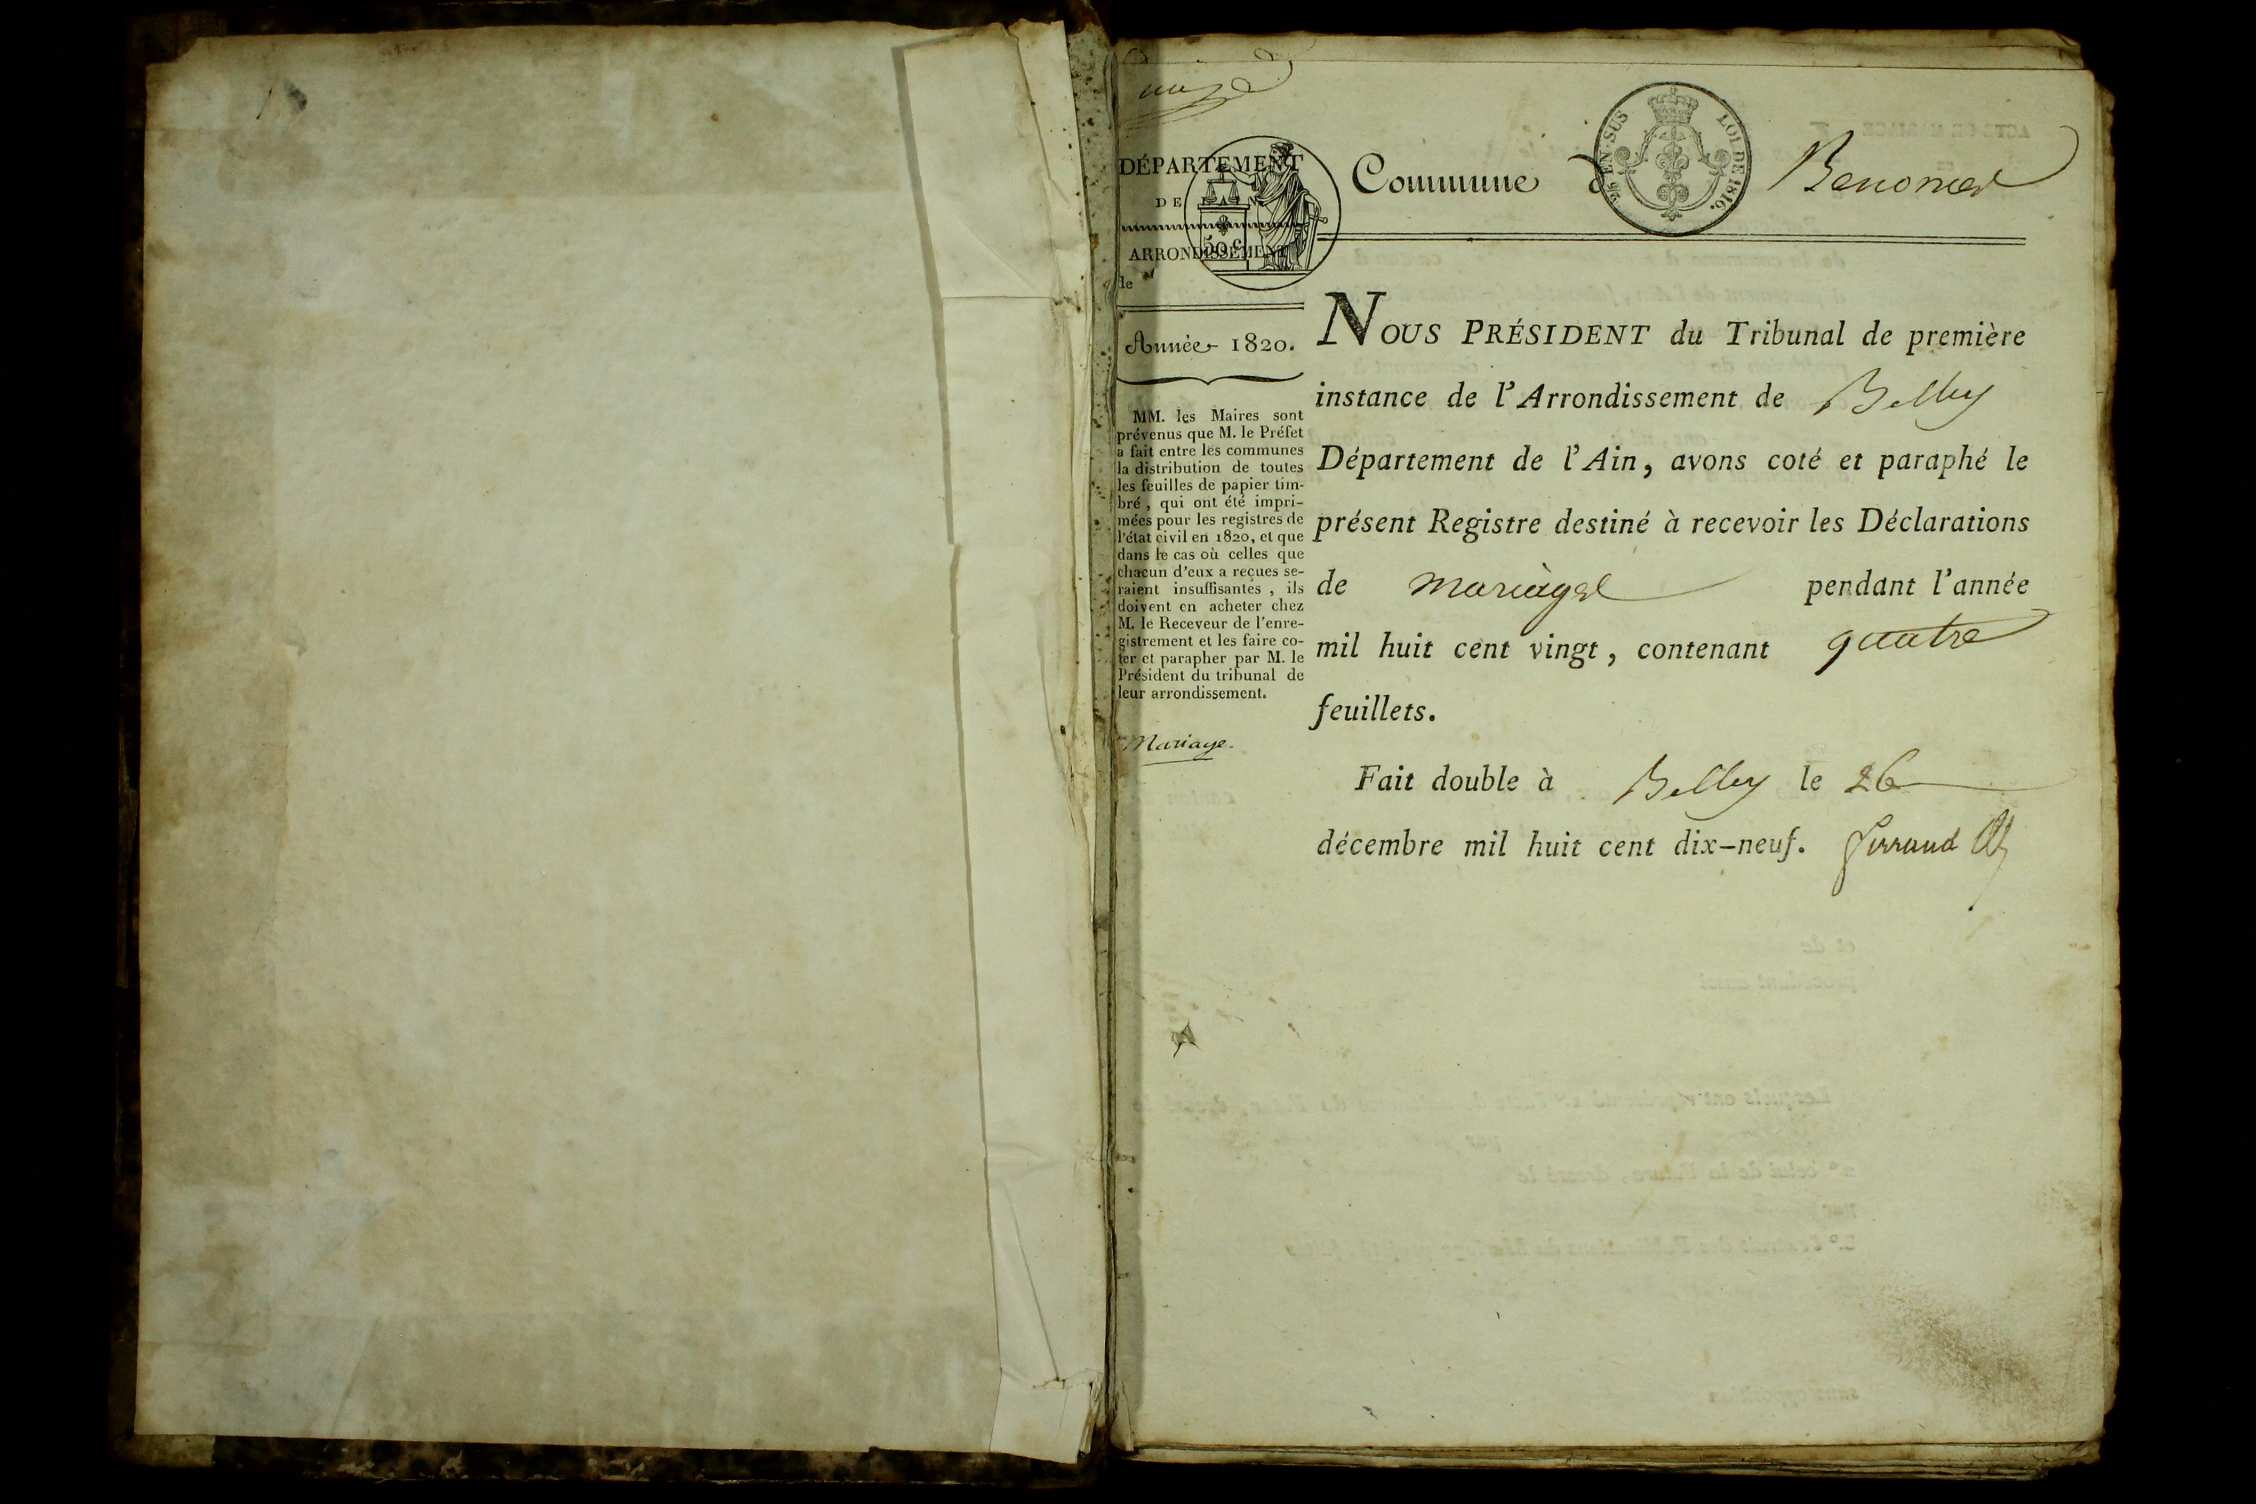 DÉPARTEMENT
DE L'AIN
50 c.
ARRONDISSEMENT
le
Année 1820.
MM. les Maires sont
prévenus que M. le Préfet
a fait entre les communes
la distribution de toutes
les feuilles de papier tim-
bré, qui ont été impri-
mées pour les registres de
l'état civil en 1820, et que
dans le cas où celles que
chacun d'eux a reçues se-
raient insuffisantes, ils
doivent en acheter chez
M. le Receveur de l'enre-
gistrement et les faire co-
ter et parapher par M. le
Président du tribunal de
leur arrondissement.
Mariage.
EN SUS LOI DE 1816.
Commune d Benonces
NOUS PRÉSIDENT du Tribunal de première
instance de l'Arrondissement de Belley
Département de l'Ain, avons coté et paraphé le
présent Registre destiné à recevoir les Déclarations
de mariages pendant l'année
mil huit cent vingt, contenant quatre
feuillets.
Fait double à Belley le 26
décembre mil huit cent dix-neuf.